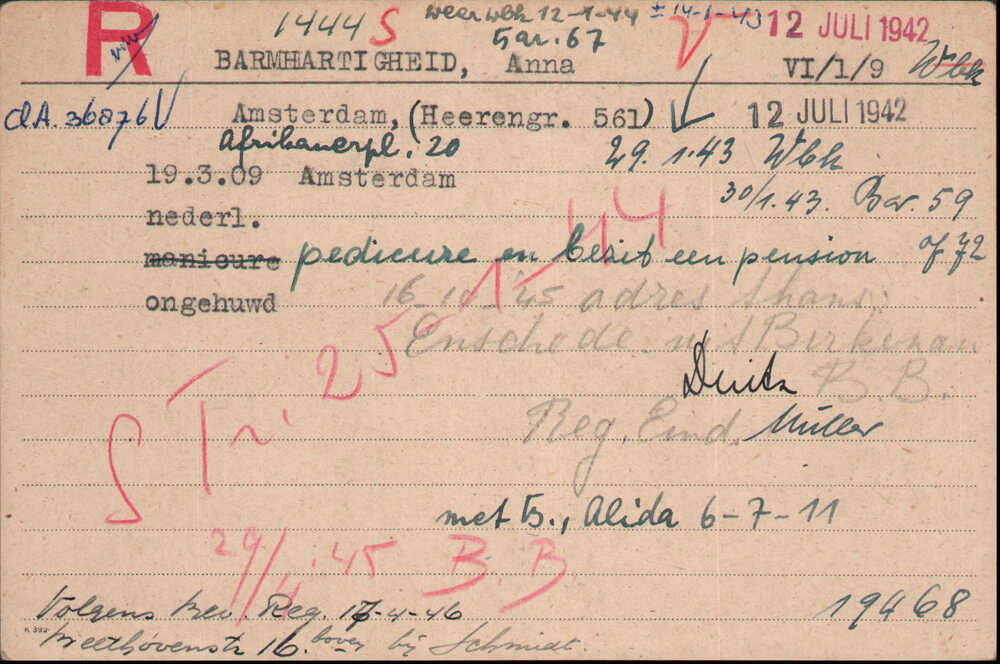 R 1444 S weer wbk 12-1-44 ± 14-1-43 12 JULI 1942
Bar. 67
BARMHARTIGHEID, Anna VI/1/9 Wbk
Cl.A. 36876 V Amsterdam, (Heerengr. 561) 12 JULI 1942
Afrikanerpl. 20 29.1.43 Wbk
19.3.09 Amsterdam 30/1.43. Bar. 59
nederl.
manicure pedicure en bezit een pension of 72
ongehuwd 16-10-'45 adres thans:
Enschede. uit Birkenau
S Tr. 25-1-44
Duitz B.B.
Reg. Eind. Müller
met B., Alida 6-7-11
29/4.'45 B.B.
Volgens Bev. Reg. 17-4-46 19468
K 392
Beethovenstr 16. boven bij Schmidt.